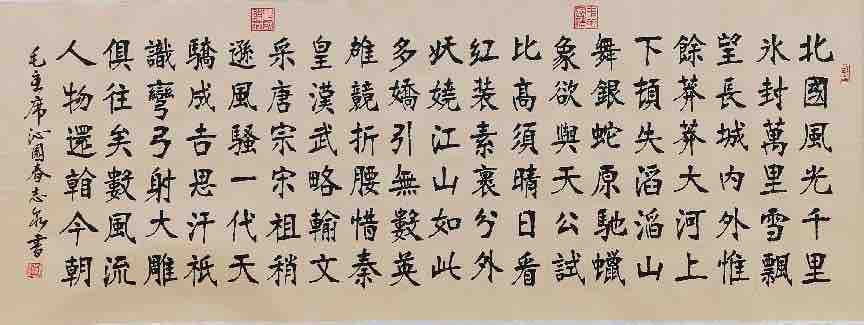 北國風光千里
氷封萬里雪飄
望長城内外惟
餘莽莽大河上
下頓失滔滔山
舞銀蛇原馳蠟
象欲與天公試
比髙須晴日看
紅装素裹兮外
妖嬈江山如此
多嬌引無數英
雄競折腰惜秦
皇漢武略輸文
采唐宗宋祖稍
遜風騷一代天
驕成吉思汗祇
識彎弓射大雕
俱往矣數風流
人物還今朝
毛主席沁園春志書